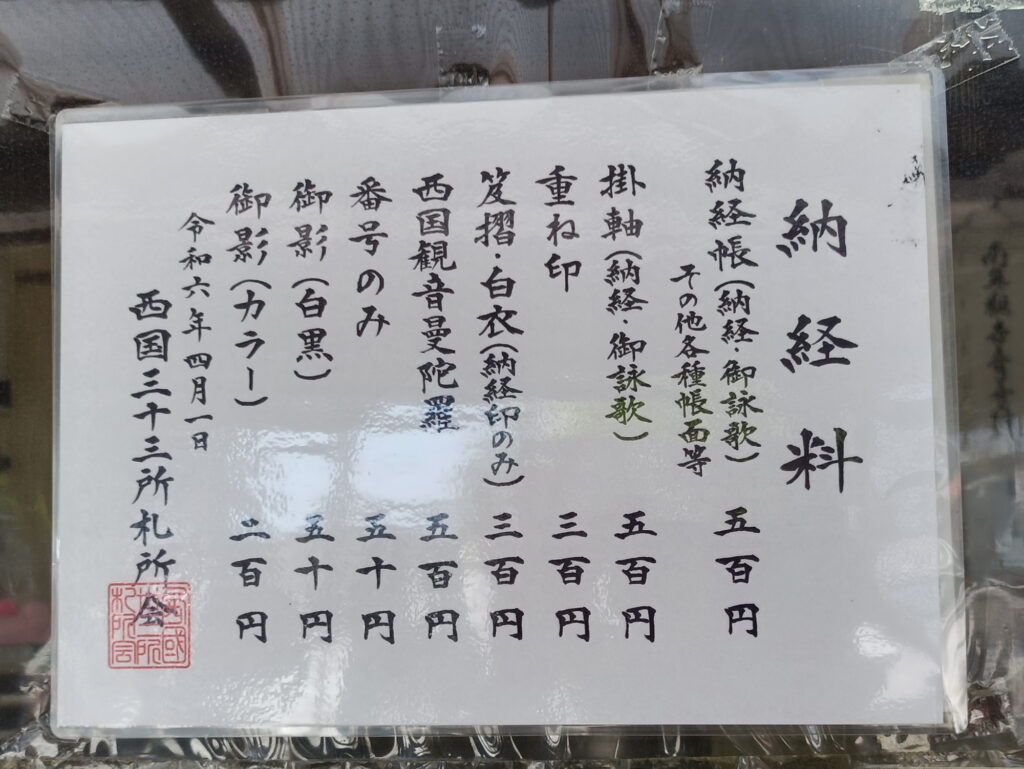 納経料
納経帳（納経・御詠歌） 五百円
その他各種帳面等
掛軸（納経・御詠歌） 五百円
重ね印 三百円
笈摺・白衣（納経印のみ） 三百円
西国観音曼陀羅 五百円
番号のみ 五十円
御影（白黒） 五十円
御影（カラー） 二百円
令和六年四月一日
西国三十三所札所会